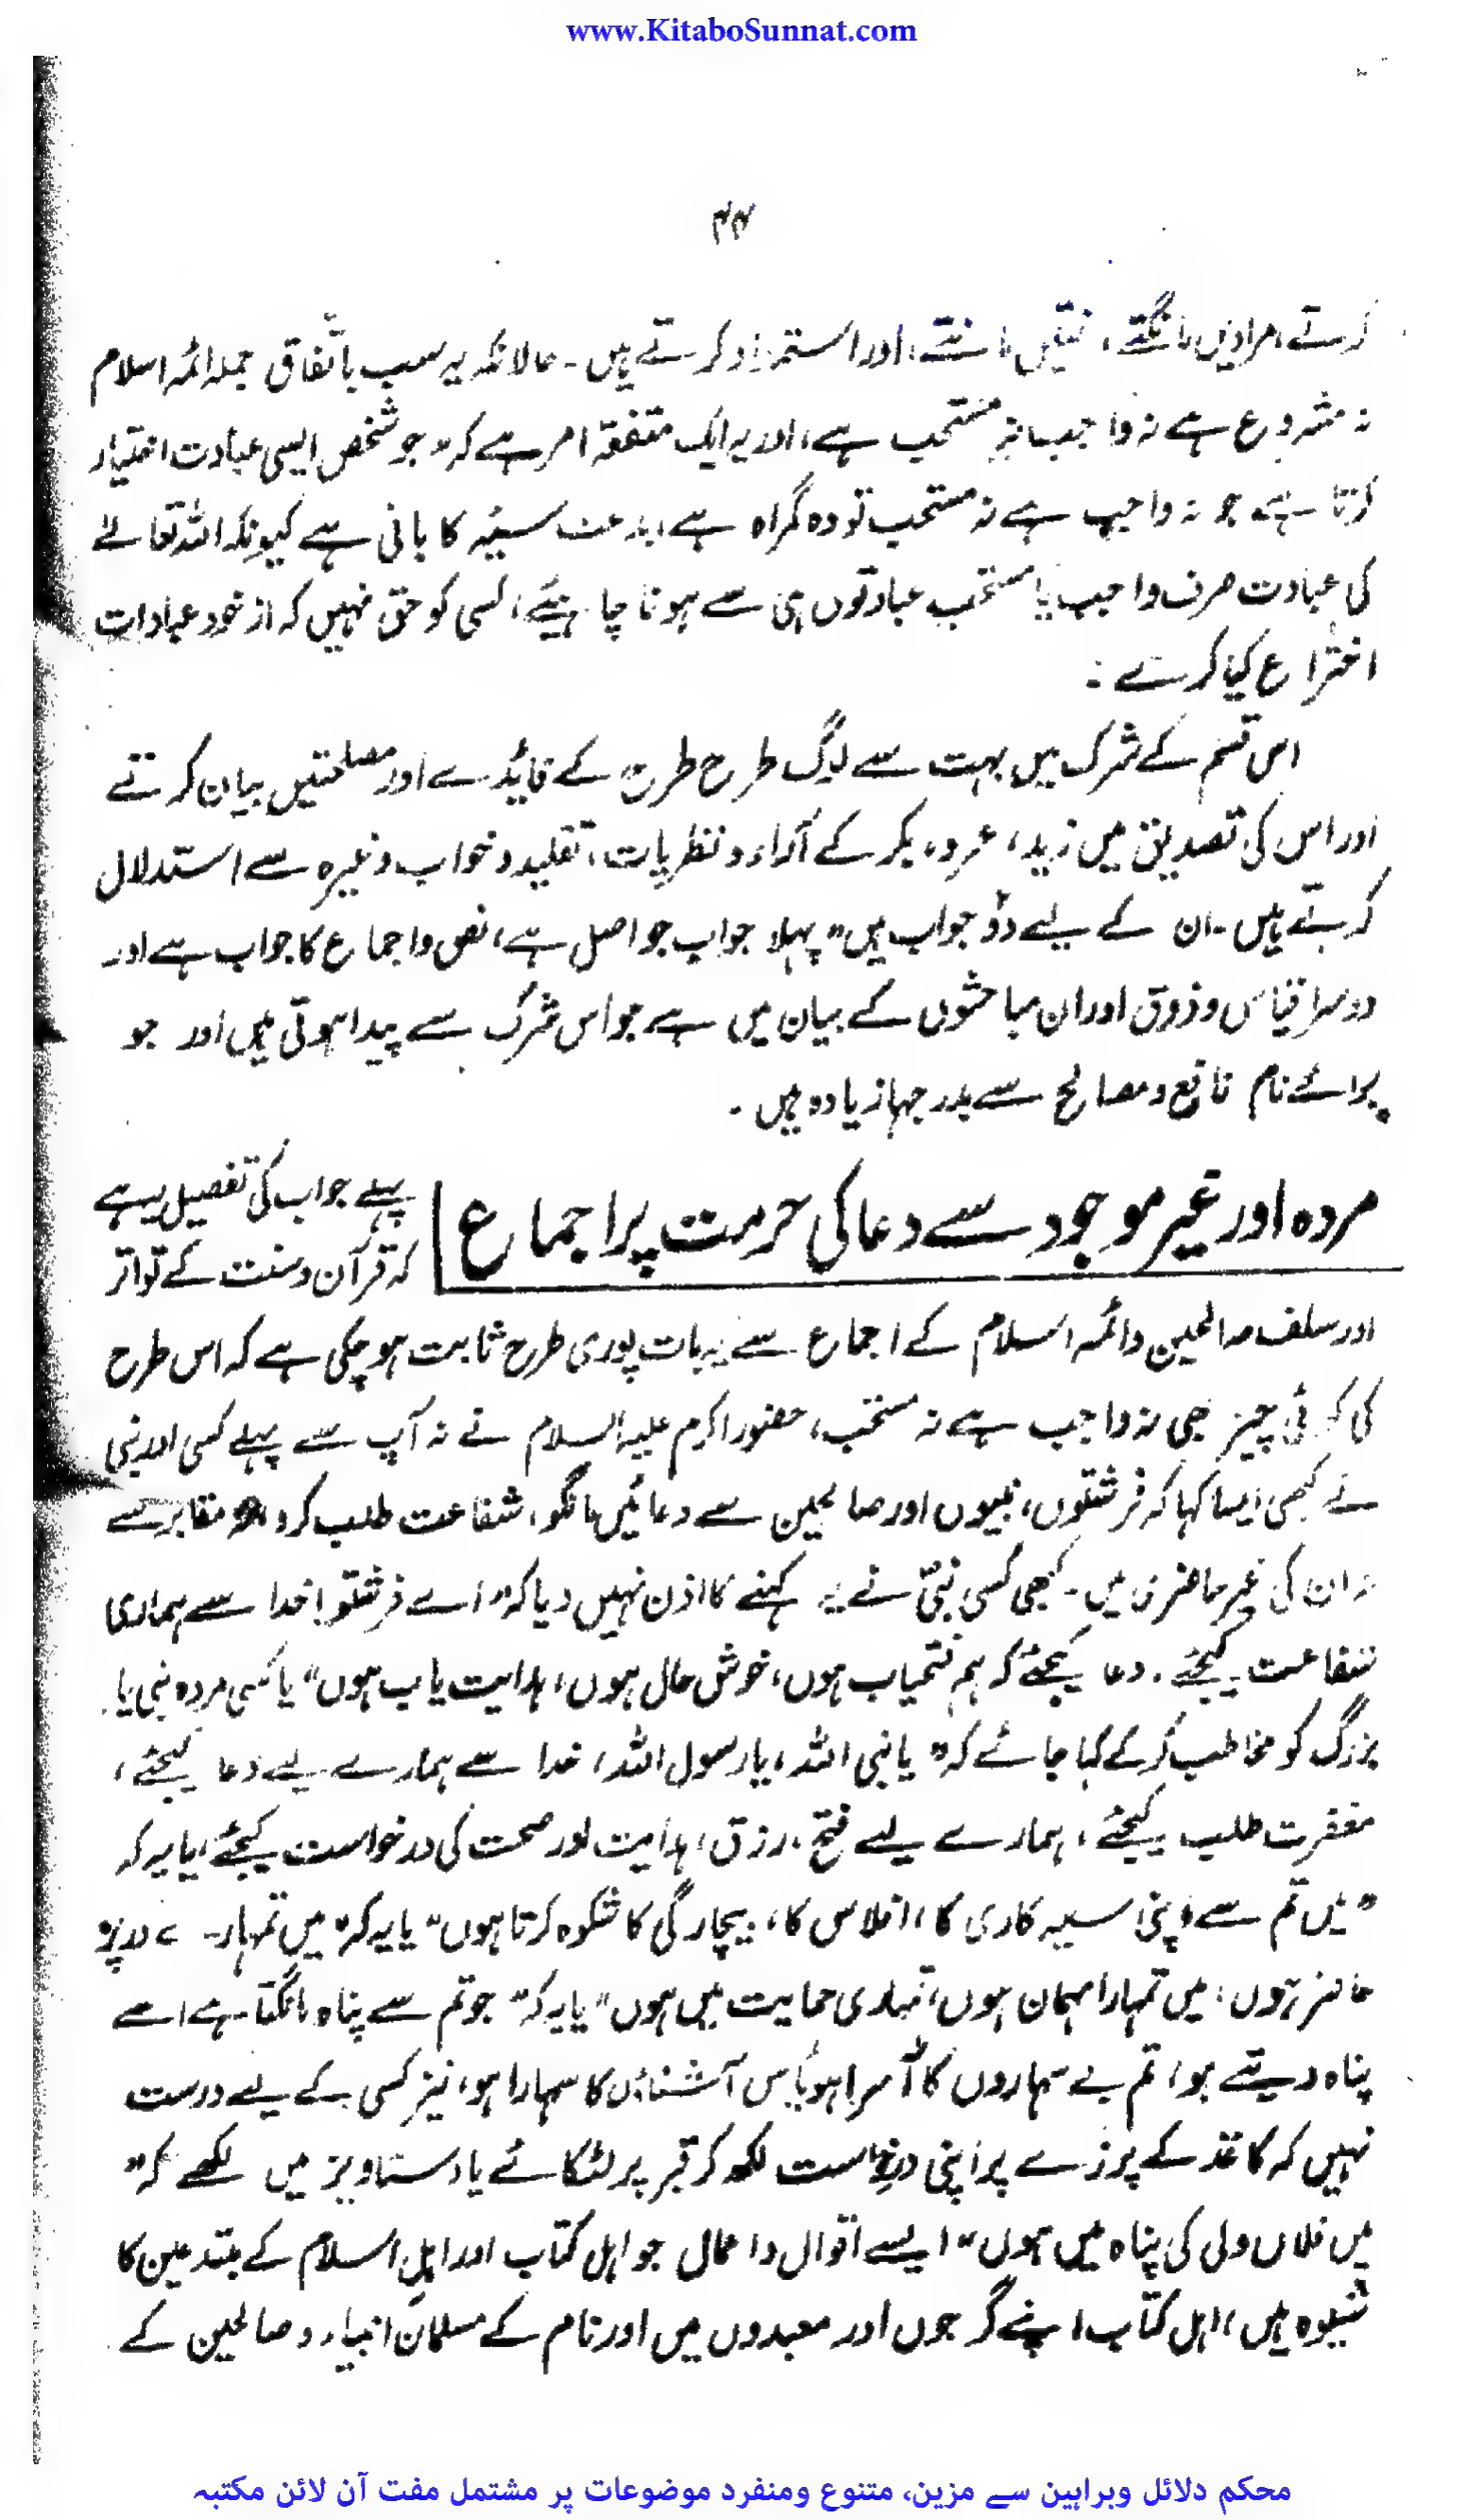 www.KitaboSunnat.com
۴۴
کرتے، مرادیں مانگتے، منتیں مانتے، اور استمداد کرتے ہیں۔ حالانکہ یہ سب باتفاق جملہ ائمہ اسلام
نہ مشروع ہے نہ واجب نہ مستحب ہے، اور یہ ایک متفقہ امر ہے کہ جو شخص ایسی عبادت اختیار
کرتا ہے جو نہ واجب ہے نہ مستحب تو وہ گمراہ ہے، بدعت سیئہ کا بانی ہے کیونکہ اللہ تعالےٰ
کی عبادت صرف واجب یا مستحب عبادتوں ہی سے ہونا چاہیئے، کسی کو حق نہیں کہ از خود عبادات
اختراع کیا کرے :
اس قسم کے شرک میں بہت سے لوگ طرح طرح کے فایدے اور مصلحتیں بیان کرتے
اور اس کی تصدیق میں زید، عمرو، بکر کے آراء و نظریات، تقلید و خواب وغیرہ سے استدلال
کرتے ہیں۔ ان کے لیے دو جواب ہیں” پہلا جواب جو اصل ہے، نص و اجماع کا جواب ہے اور
دوسرا قیاس و ذوق اور ان مباحثوں کے بیان میں ہے جو اس شرک سے پیدا ہوتی ہیں اور جو
برائے نام نافع و مصالح سے بدرجہا زیادہ ہیں ۔
مردہ اور غیر موجود سے دعا کی حرمت پر اجماع
پہلے جواب کی تفصیل یہ ہے
کہ قرآن و سنت کے تواتر
اور سلف صالحین و ائمہ اسلام کے اجماع سے یہ بات پوری طرح ثابت ہو چکی ہے کہ اس طرح
کی کوئی چیز بھی نہ واجب ہے نہ مستحب، حضور اکرم علیہ السلام نے نہ آپ سے پہلے کسی اور نبی
نے کبھی ایسا کہا کہ فرشتوں، نبیوں اور صالحین سے دعائیں مانگو، شفاعت طلب کرو مقابر سے
نہ ان کی غیر حاضری میں۔ کبھی کسی نبیؐ نے یہ کہنے کا اذن نہیں دیا کہ” اے فرشتو! خدا سے ہماری
شفاعت کیجئے۔ دعا کیجئے کہ ہم فتحیاب ہوں، خوش حال ہوں، ہدایت یاب ہوں“ یا کسی مردہ نبی یا
بزرگ کو مخاطب کر کے کہا جائے کہ” یا نبی اللہ، یا رسول اللہ، خدا سے ہمارے لیے دعا کیجئے،
مغفرت طلب کیجئے، ہمارے لیے فتح، رزق، ہدایت اور صحت کی درخواست کیجئے، یا یہ کہ
”میں تم سے اپنی سیہ کاری کا، افلاس کا، بیچارگی کا شکوہ کرتا ہوں“ یا یہ کہ” میں تمہارے در پر
حاضر ہوں، میں تمہارا مہمان ہوں، تمہاری حمایت میں ہوں“ یا یہ کہ” جو تم سے پناہ مانگتا ہے اسے
پناہ دیتے ہو، تم بے سہاروں کا آسرا ہو، آشناؤں کا سہارا ہو، نیز کسی کے لیے درست
نہیں کہ کاغذ کے پرزے پر اپنی درخواست لکھ کر قبر پر لٹکائے یا دستاویز میں لکھے کہ”
میں فلاں ولی کی پناہ میں ہوں“ ایسے اقوال و اعمال جو اہل کتاب اور اہل اسلام کے مبتدعین کا
شیوہ ہیں، اہل کتاب اپنے گرجوں اور معبدوں میں اور نام کے مسلمان انبیاء و صالحین کے
محکم دلائل وبراہین سے مزین، متنوع ومنفرد موضوعات پر مشتمل مفت آن لائن مکتبہ